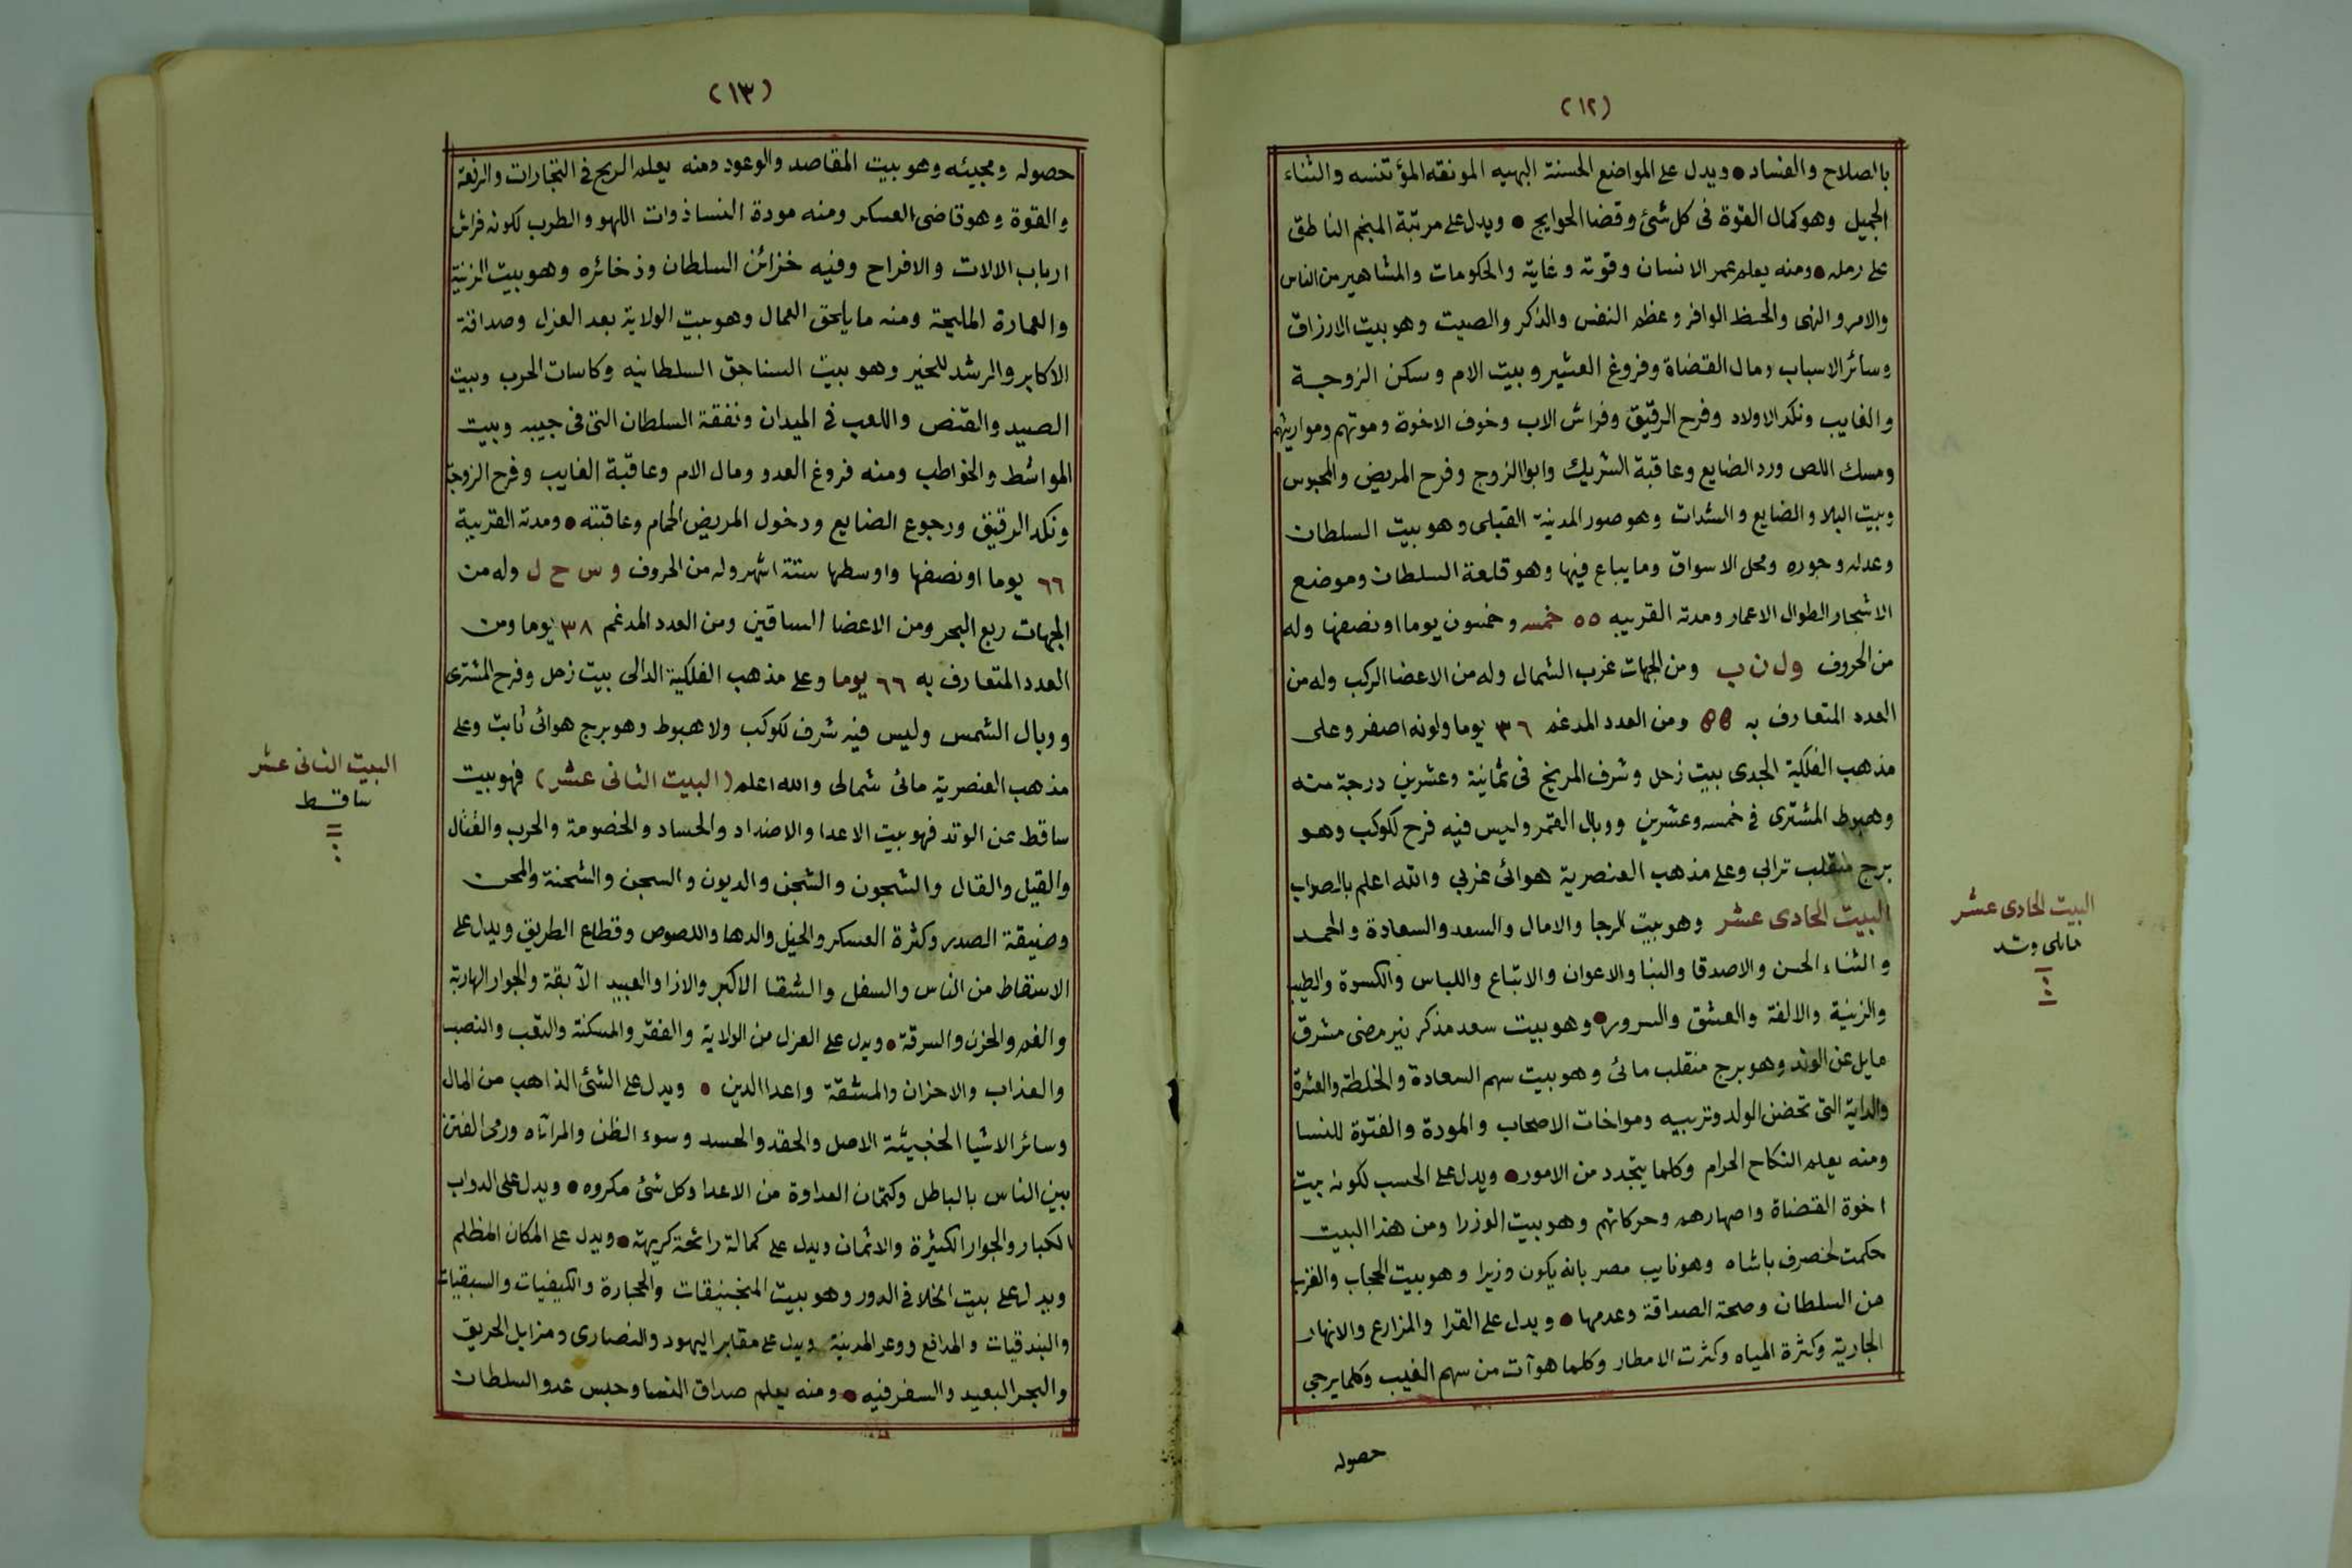 (١٢)
بالصلاح والفساد • ويدل على المواضع الحسنة البهيه المونقه المؤتنسه والثناء
الجميل وهو كمال القوة فى كل شئ وقضا الحوايج • ويدل على مرتبة المنجم الناطق
على رمله • ومنه يعلم عمر الانسان وقوته وغايته والحكومات والمشاهير من الناس
والامر والنهى والحظ الوافر وعظم النفس والذكر والصيت وهو بيت الارزاق
وسائر الاسباب ومال القضاة وفروغ العشير وبيت الام وسكن الزوجة
والغايب ونكد الاولاد وفرح الرقيق وفراش الاب وخوف الاخوة وموتهم ومواريثهم
ومسك اللص ورد الضايع وعاقبة الشريك وابوا الزوج وفرح المريض والمحبوس
وبيت البلا والضايع والشدات وهو صور المدينة القبلى وهو بيت السلطان
وعدله وجوره ومحل الاسواق وما يباع فيها وهو قلعة السلطان وموضع
الاشجار الطوال الاعمار ومدته القريبه ٥٥ خمسه وخمسون يوما او نصفها وله
من الحروف و ل ن ب ومن الجهات غرب الشمال وله من الاعضا الركب وله من
العدد المتعارف به ٥٥ ومن العدد المدغم ٣٦ يوما ولونه اصفر وعلى
مذهب الفلكية الجدى بيت زحل وشرف المريخ فى ثمانية وعشرين درجة منه
وهبوط المشترى فى خمسه وعشرين ووبال القمر وليس فيه فرح لكوكب وهو
برج منقلب ترابى وعلى مذهب العنصرية هوائى غربي والله اعلم بالصواب
البيت الحادى عشر وهو بيت الرجا والامال والسعد والسعادة والحمد
والثناء الحسن والاصدقا والبنا والاعوان والاتباع واللباس والكسوة والطيب
والزينة والالفة والعشق والسرور • وهو بيت سعد مذكر نير مضى مشرق
مايل عن الوتد وهو برج منقلب مائى وهو بيت سهم السعادة والخلطة والعشرة
والداية التى تحضن الولد وتربيه ومواخات الاصحاب والمودة والفتوة للنسا
ومنه يعلم النكاح الحرام وكلما يتجدد من الامور • ويدل على الحسب لكونه بيت
اخوة القضاة واصهارهم وحركاتهم وهو بيت الوزرا ومن هذا البيت
حكمت لخصرف باشاه وهو نايب مصر بانه يكون وزيرا وهو بيت الحجاب والقرب
من السلطان وصحة الصداقة وعدمها • ويدل على القرا والمزارع والانهار
الجارية وكثرة المياه وكثرت الامطار وكلما هو آت من سهم الغيب وكلما يرجى
حصوله
البيت الحادى عشر
مايل وتد
(١٣)
حصوله ومجيئه وهو بيت المقاصد والوعود ومنه يعلم الربح فى التجارات والرفعة
والقوة وهو قاضى العسكر ومنه مودة النسا ذوات اللهو والطرب لكونه فراش
ارباب الالات والافراح وفيه خزائن السلطان وذخائره وهو بيت الزينة
والعمارة المليحة ومنه ما يلحق العمال وهو بيت الولاية بعد العزل وصداقة
الاكابر والرشد للخير وهو بيت السناجق السلطانيه وكاسات الحرب وبيت
الصيد والقنص واللعب فى الميدان ونفقة السلطان التى فى جيبه وبيت
المواشط والخواطب ومنه فروغ العدو ومال الام وعاقبة الغايب وفرح الزوجة
ونكد الرقيق ورجوع الضايع ودخول المريض الحمام وعاقبته • ومدته القريبة
٦٦ يوما او نصفها واوسطها ستة اشهر وله من الحروف و س ح ل وله من
الجهات ربع البحر ومن الاعضا الساقين ومن العدد المدغم ٣٨ يوما ومن
العدد المتعارف به ٦٦ يوما وعلى مذهب الفلكية الدالى بيت زحل وفرح المشترى
ووبال الشمس وليس فيه شرف لكوكب ولا هبوط وهو برج هوائى ثابت وعلى
مذهب العنصرية مائى شمالى والله اعلم (البيت الثانى عشر) فهو بيت
ساقط عن الوتد فهو بيت الاعدا والاضداد والحساد والخصومة والحرب والقتال
والقيل والقال والشجون والشجن والديون والسجن والشحنة والمحن
وضيقة الصدر وكثرة العسكر والخيل والدها واللصوص وقطاع الطريق ويدل على
الاسقاط من الناس والسفل والشقا الاكبر والاذا والعبيد الآبقة والجوار الهاربة
والغم والحزن والسرقة • ويدل على العزل من الولاية والفقر والمسكنة والتعب والنصب
والعذاب والاحزان والمشقة واعدا الدين • ويدل على الشئ الذاهب من المال
وسائر الاشيا الخبيثة الاصل والحقد والحسد وسوء الظن والمرآاه ورمى الفتن
بين الناس بالباطل وكتمان العداوة من الاعدا وكل شئ مكروه • ويدل على الدواب
الكبار والجوار الكثيرة والاثمان ويدل على كمالة رائحة كريهة • ويدل على المكان المظلم
ويدل على بيت الخلا فى الدور وهو بيت المنجنيقات والحجارة والكيفيات والسبقيات
والبندقيات والمدافع ووعر المدينة ويدل على مقابر اليهود والنصارى ومزابل الحريق
والبحر البعيد والسفر فيه • ومنه يعلم صداق النسا وحبس عدو السلطان
البيت الثانى عشر
ساقط